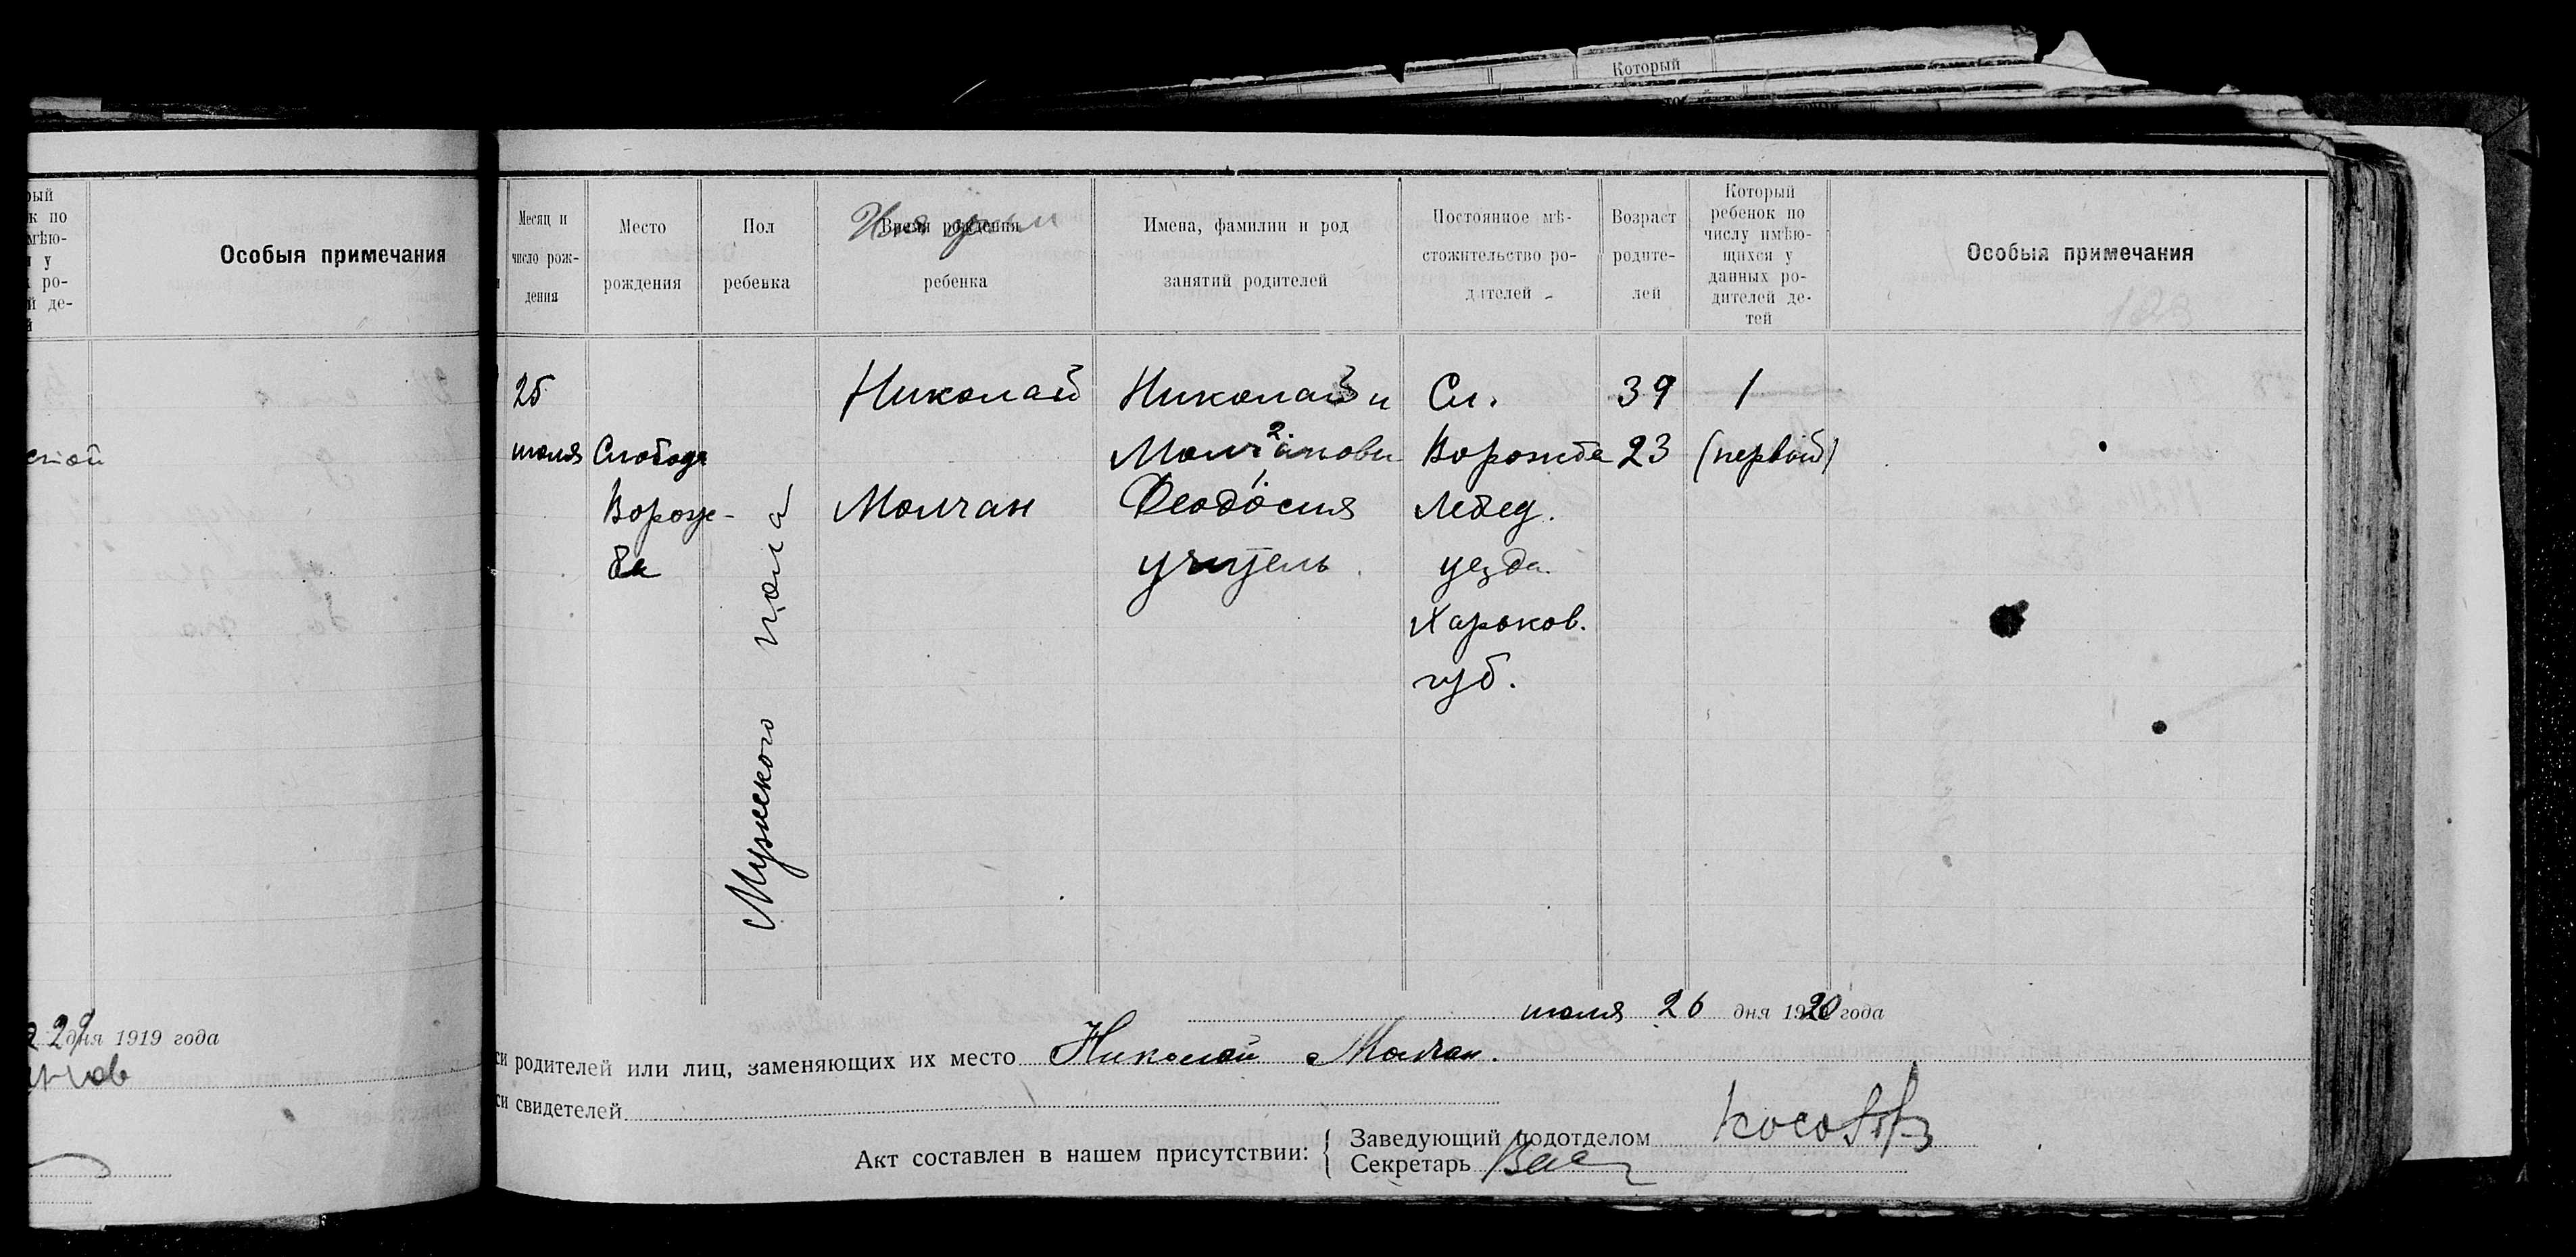 Который
рый
к по
мѣю-
у
ро-
й де-
й
Особыя примечания
ской
29 дня 1919 года
Месяц и
число рож-
дения
Место
рождения
Пол
ребенка
Время рождения
ребенка
Имена, фамилии и род
занятий родителей
Постоянное мѣ-
стожительство ро-
дителей
Возраст
родите-
лей
Который
ребенок по
числу имѣю-
щихся у
данных ро-
дителей де-
тей
Особыя примечания
25
июля
Слобода
Ворож-
ба
Мужеского пола
Николай
Молчан
Николай и
Молчановы
Феодосия
учитель
Сл.
Ворожба
Лебед.
уезда
Харьков.
губ.
39
23
1
(первый)
июля 26 дня 1920 года
си родителей или лиц, заменяющих их место Николай Молчан.
си свидетелей
Акт составлен в нашем присутствии:
Заведующий подотделом
Секретарь